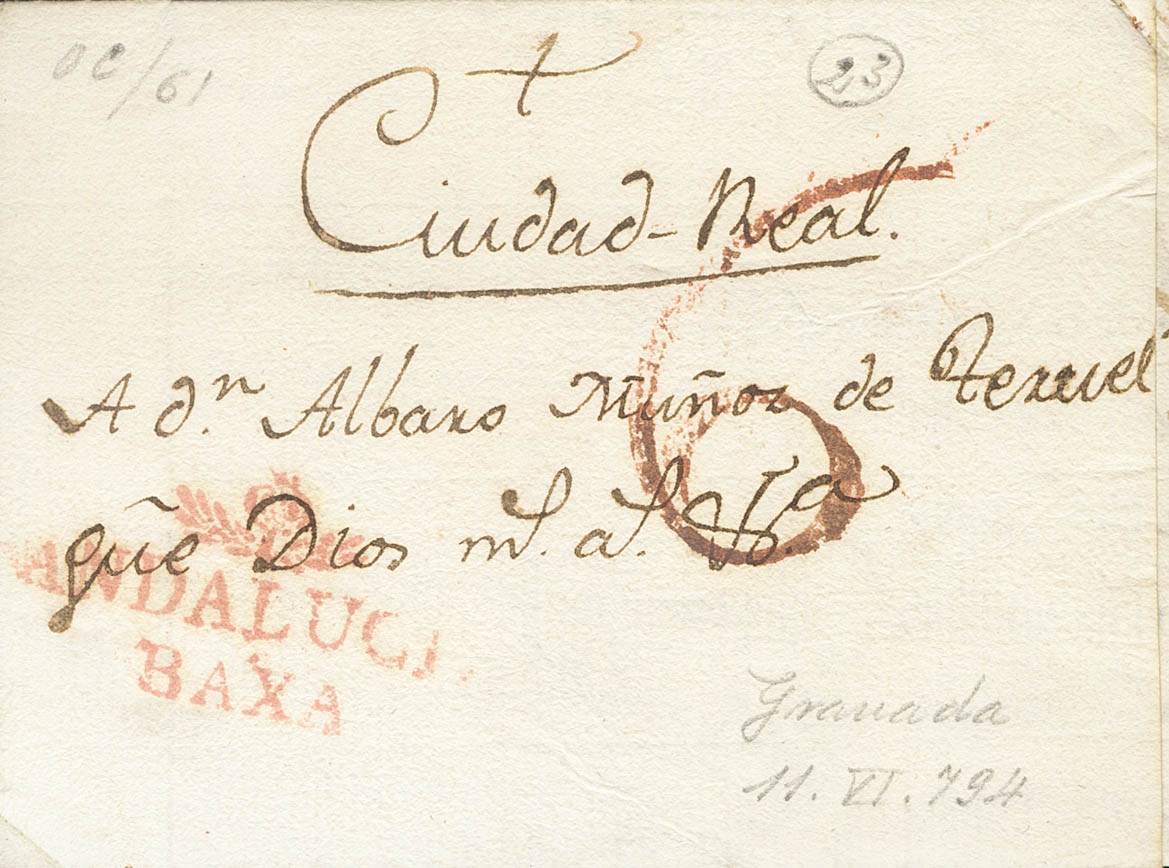 OC/61
23
+
Ciudad-Real.
6
A dⁿ. Albaro Muñoz de Teruel
gũe Dios mˢ. aˢ.
ANDALUCI
BAXA
Granada
11. VI. 794